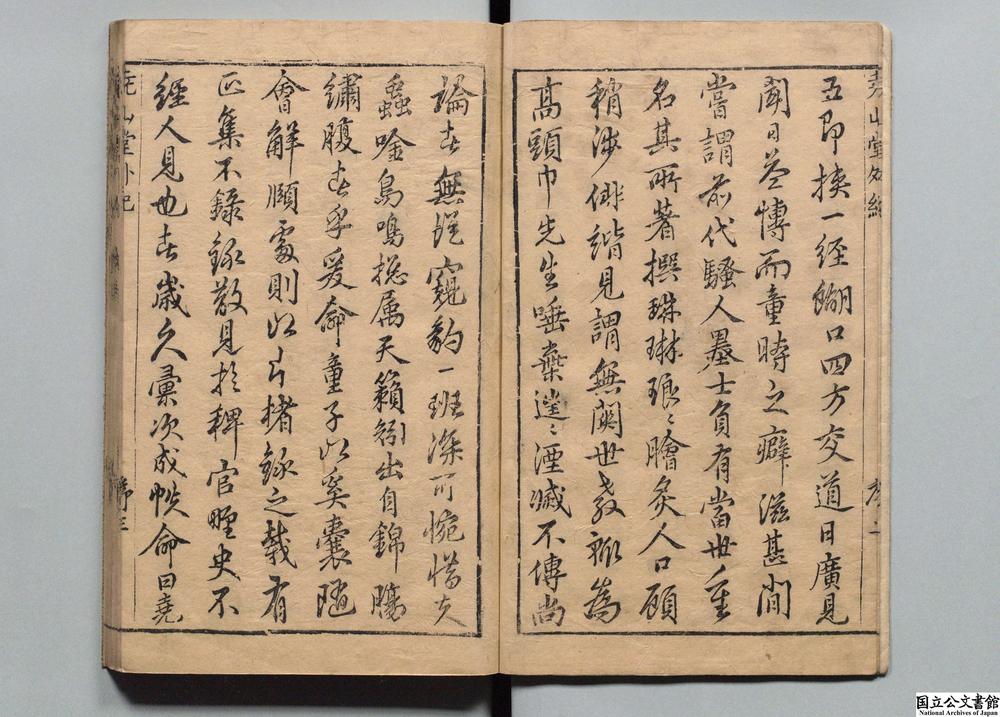 堯山堂外紀
序二
五即挟一経餬口四方交道日廣見
聞日益慱而童時之癖滋甚間
嘗謂前代騷人墨士負有當世重
名其所著撰珠琳琅〻膾炙人口顧
稍涉俳諧見謂無関世教輙為
高頭巾先生唾棄遂〻湮滅不傳尚
論者無従窺豹一班深可惋惜夫
蟲唫鳥鳴揔属天籟矧出自錦膓
繡腹者乎爰命童子以奚囊随
會解頤處則以片楮錄之載有
正集不錄錄散見扵稗官野史不
經人見也者歳久彙次成帙命曰堯
堯山堂外紀
序三
国立公文書館
National Archives of Japan